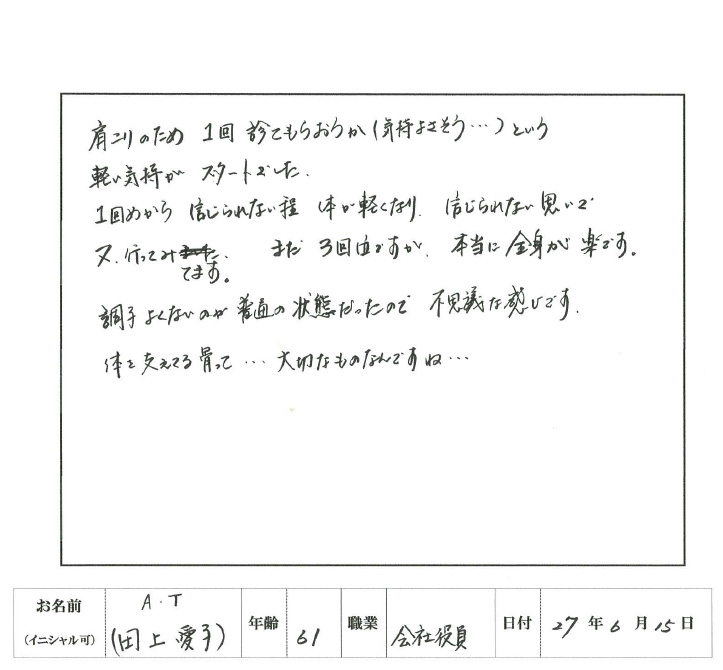 肩こりのため 1回 診てもらおうか(気持よさそう…)という
軽い気持が スタートでした.
1回めから 信じられない程 体が軽くなり. 信じられない思いで
又、行ってみてます。 まだ 3回目ですが、本当に全身が楽です。
調子よくないのが 普通の状態だったので 不思議な感じです.
体を支えてる骨って … 大切なものなんですね…
お名前 (イニシャル可) A.T (田上愛子) 年齢 61 職業 会社役員 日付 27年6月15日